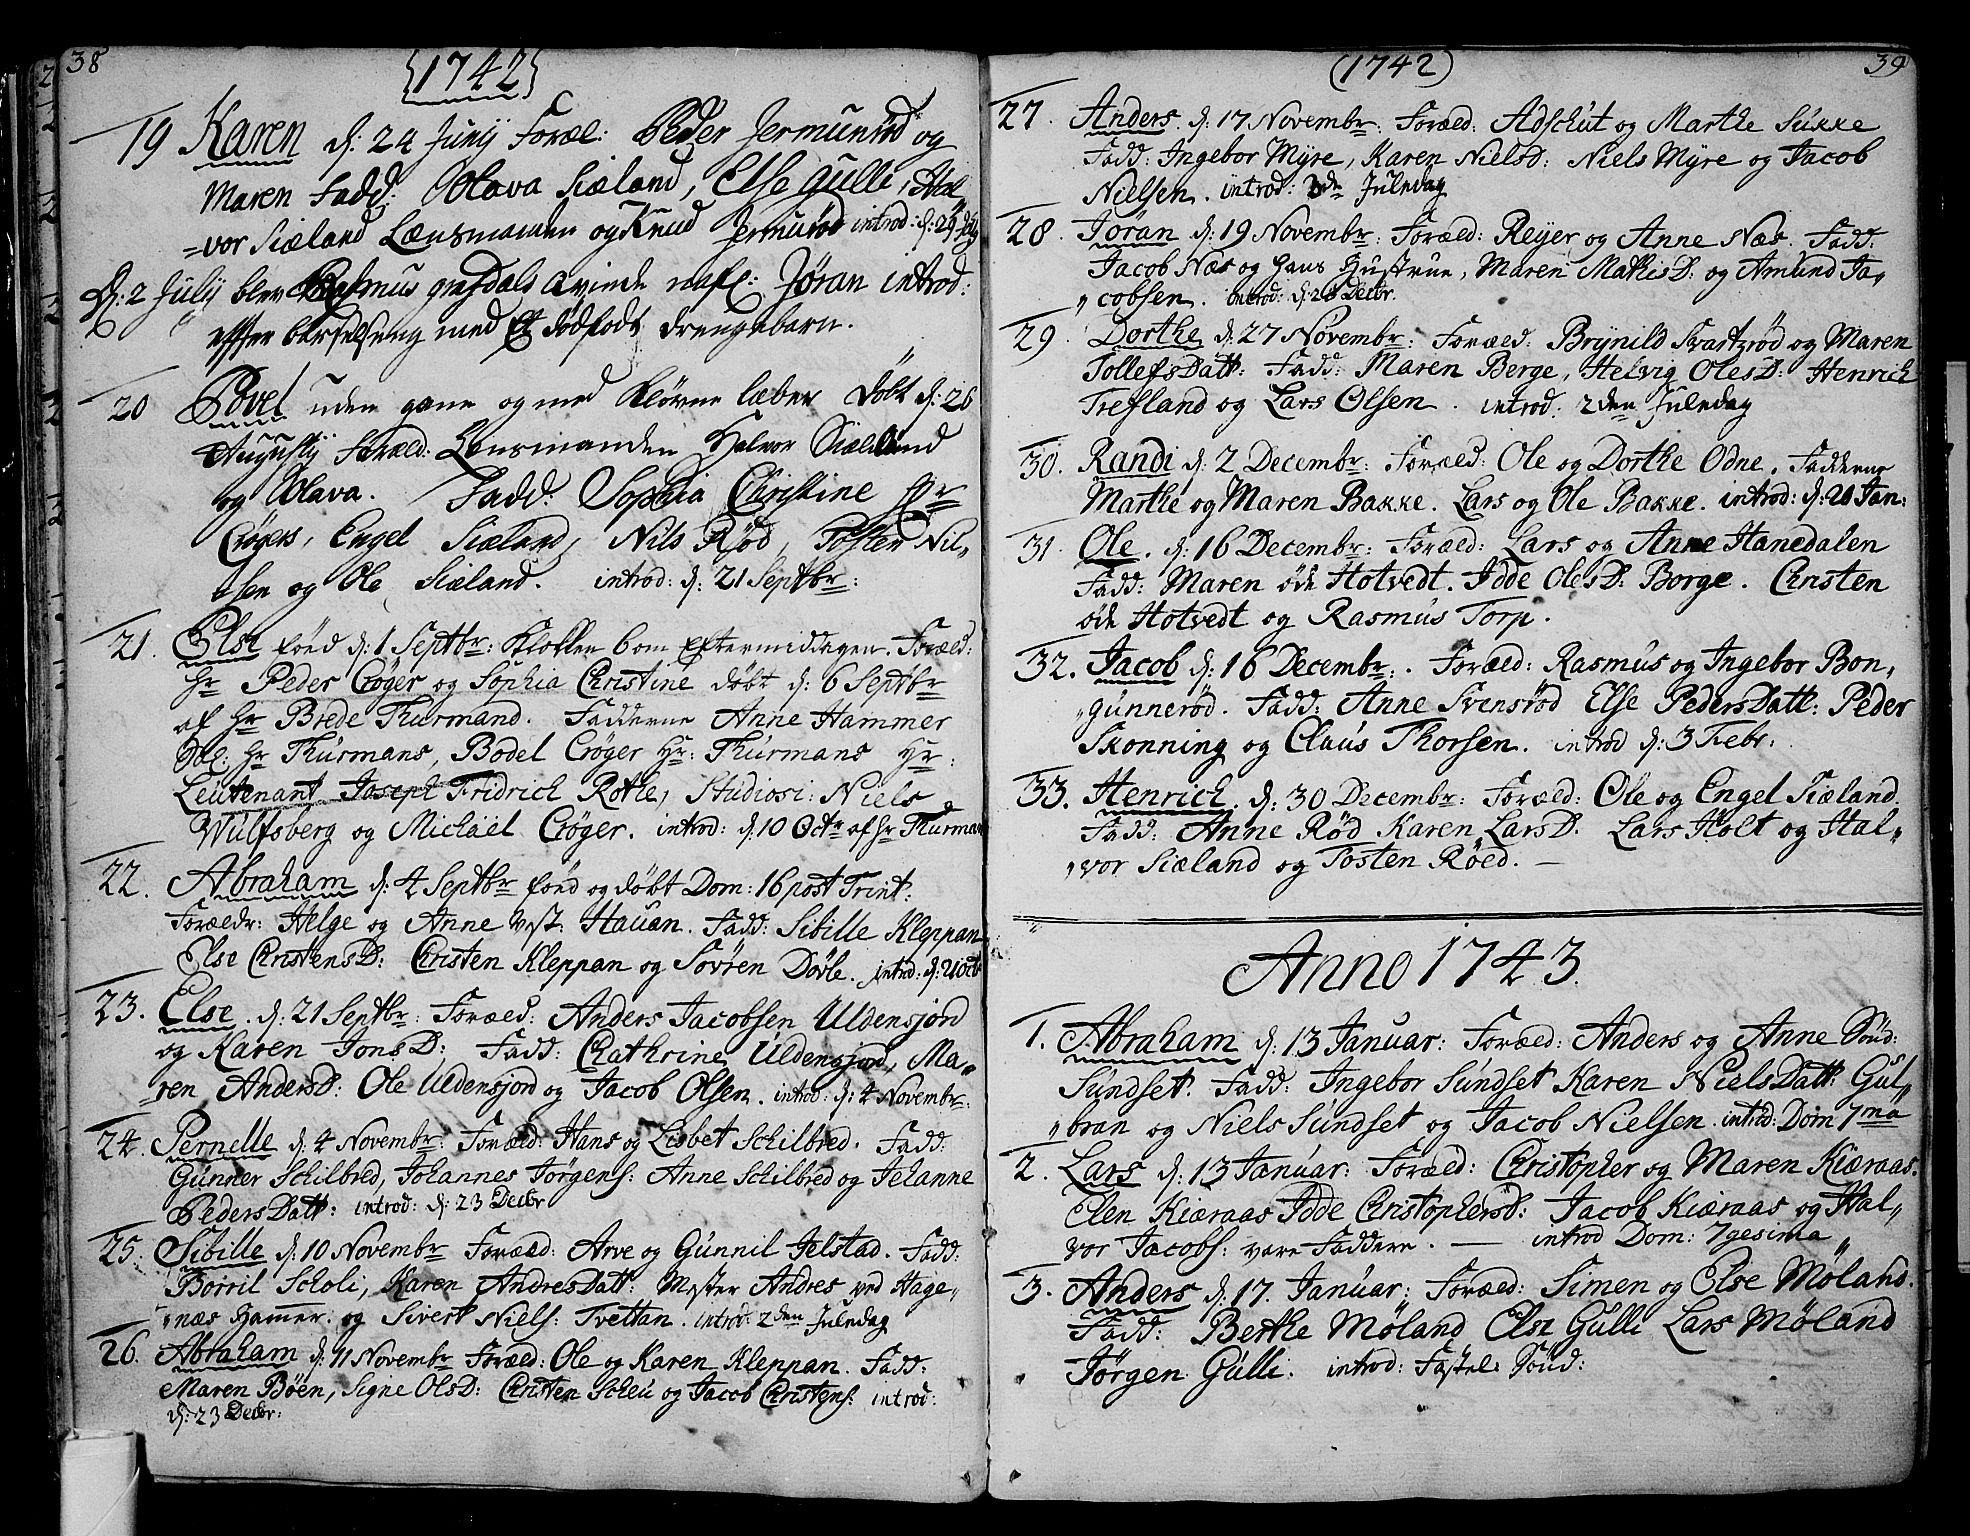 38
{1742}
19 Karen d: 24 Junij Foræl: Peder Jermunrød og
Maren Fadd: Olava Siæland, Else Gulli, Hal„
=vor Siæland Lænsmanden og Knud Jermurød introd: d: 29 July
D: 2 Julij blev Rasmus Qvinde nafl: Jøran introd:
effter barselseng med Et dødfødt drengebarn.
20 Povel uden gane og med kløvne læber Døbt d: 26
Augustij Foræld: Lensmanden Halvor Siæland
og Olava. Fadd: Sophia Christine Hr
Crøgers, Engel Siæland, Nils Rød, Tosten Nil„
sen og Ole Siæland. introd: d: 21 Septbr:
21. Else fød d: 1 Septbr: Klokken 6 om Eftermiddagen. Foræld:
Hr Peder Crøger og Sophia Christine døbt d: 6 Septbr
af Hr Brede Thurmand. Fadderne Anne Hammer
Sal: Hr Thurmans, Bodel Crøger Hr: Thurmans Hr:
Leutenant Joseph Fridrich Rothe, Studiosi: Niels
Wulfsberg og Michäel Crøger. introd: d: 10 Octr af Hr Thurman
22. Abraham d: 4 Septbr fød og døbt Dom: 16 post Trint:
Forældr: Helge og Anne Vest: Hauan. Fadd: Sibille Kleppan
Else ChristensD: Christen Kleppan og Sövren Dövle. introd: d: 21 Octb
23. Else. d: 21 Septbr: Foræd: Anders Jacobsen Uldensjord
og Karen JonsD: Fadd: Chathrine Uldensjord, Ma„
„ren AndersD: Ole Uldensjord og Jacob Olsen. introd: d: 4 Novembr:
24. Pernelle d: 4 Novembr: Foræld: Hans og Lisbet Schilbred. Fadd:
Gunner Schilbred, Johannes Jørgens: Anne Schilbred og Jehanne
PedersDatt: introd: d: 23 Decbr
25. Sibille d: 10 Novembr Foræld: Arve og Gunnil Jelstad. Fadd:
Borril Scholi, Karen AndresDatt: Mester Andres ved Hage„
„næs Hamer: og Sivert Niels: Tvettan. introd: 2den Juledag
26. Abraham d: 11 Novembr Foræld: Ole og Karen Kleppan. Fadd:
Maren Böen, Signe OlsD: Christen Scheu og Jacob Christens: introd:
d: 23 Decbr:
(1742) 39
27. Anders. d: 17 Novembr: Foræld: Adschut og Marthe Sukke
Fadd: Ingebor Myre, Karen NielsD: Niels Myre og Jacob
Nielsen. introd: Juledag
28. Jöran d: 19 Novembr: Foræld: Reyer og Anne Næs. Fadd:
Jacob Næs og hans Hustrue, Maren MathisD: og Amund Ja„
„cobsen. introd: d: 28 Decbr.
29. Dorthe d: 27 Novembr: Foræd: Brynild Svartzröd og Maren
TollefsDatt: Fadd: Maren Berge, Helvig OlesD: Henrich
Trefland og Lars Olsen. introd: 2den Juledag
30. Randi d: 2 Decembr: Foræld: Ole og Dorthe Odne. Fadderne
Marthe og Maren Bakke. Lars og Ole Bakke. introd: d: 20 Jan:
31. Ole. d: 16 Decembr: Foræld: Lars og Anne Hanedalen
Fadd: Maren öde Hotvedt. Idde OlesD: Borge. Christen
öde Hotvedt og Rasmus Torp.
32. Jacob d: 16 Decembr:. Foræld: Rasmus og Ingebor Bon„
„gunneröd. Fadd: Anne Svensröd Else PedersDatt: Peder
Skonning og Claus Thorsen. introd d: 3 Febr:
33. Henrich. d: 30 Decembr: Foræld: Ole og Engel Siæland.
Fadd: Anne Röd Karen LarsD. Lars Holt og Hal„
„vor Siæland og Tosten Röed. —
Anno 1743.
1. Abraham d: 13 Januar: Foræld: Anders og Anne Sönd:
Sundset. Fadd: Ingebor Sundset Karen NielsDatt: Gul„
„bran og Niels Sundset og Jacob Nielsen. introd: Dom 7ma
2. Lars d: 13 Januar: Foræld: Christopher og Maren Kiæraas.
Elen Kiæraas Idde ChristophersD: Jacob Kiæraas og Hal„
vor Jacobs: vare Faddere. — introd Dom: 7gesima
3. Anders d: 17. Januar: Foræld: Simen og Else Møland.
Fadd: Berthe Møland Else Gulli Lars Møland
Jørgen Gulli. introd: Fastel: Sönd: